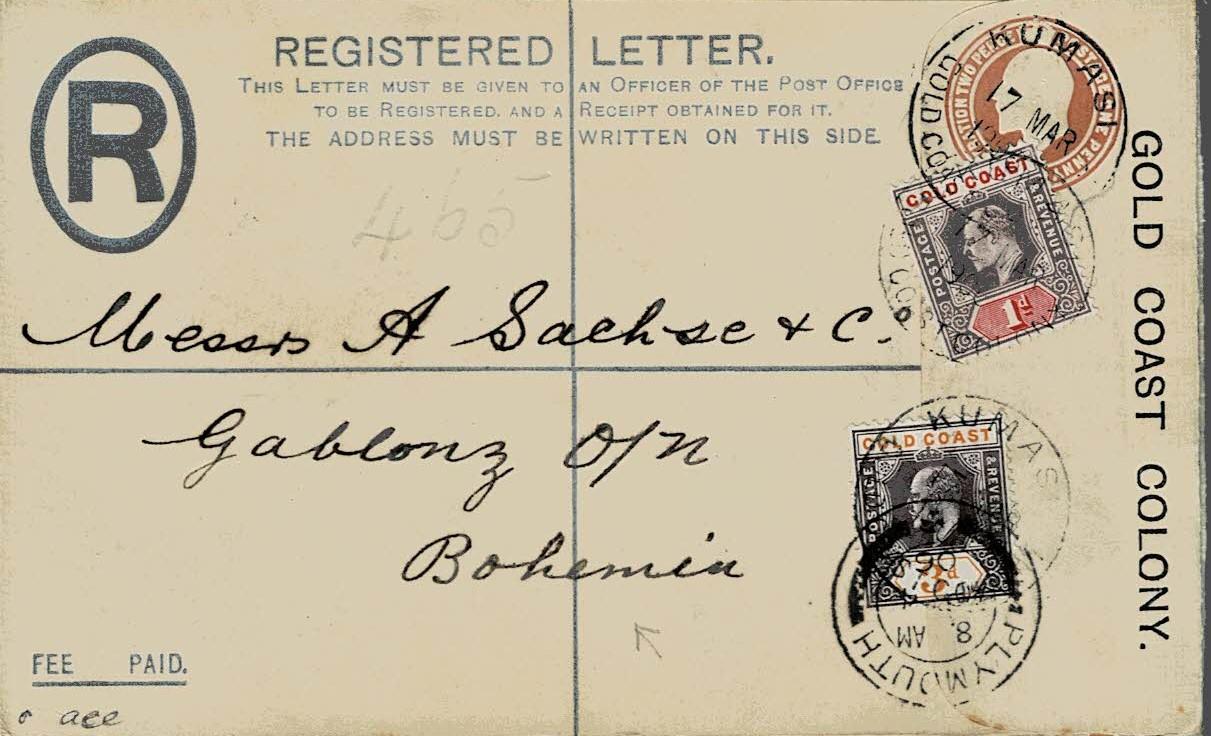 REGISTERED LETTER.
THIS LETTER MUST BE GIVEN TO AN OFFICER OF THE POST OFFICE
TO BE REGISTERED, AND A RECEIPT OBTAINED FOR IT.
THE ADDRESS MUST BE WRITTEN ON THIS SIDE.
R
465
Messrs A Sachse & C.
Gablonz O/N
Bohemia
FEE PAID.
GOLD COAST COLONY.
KUMASI
17 MAR
GOLD COAST
GOLD COAST
POSTAGE & REVENUE
1d
KUMASI
GOLD COAST
POSTAGE & REVENUE
3d
PLYMOUTH
8 AM